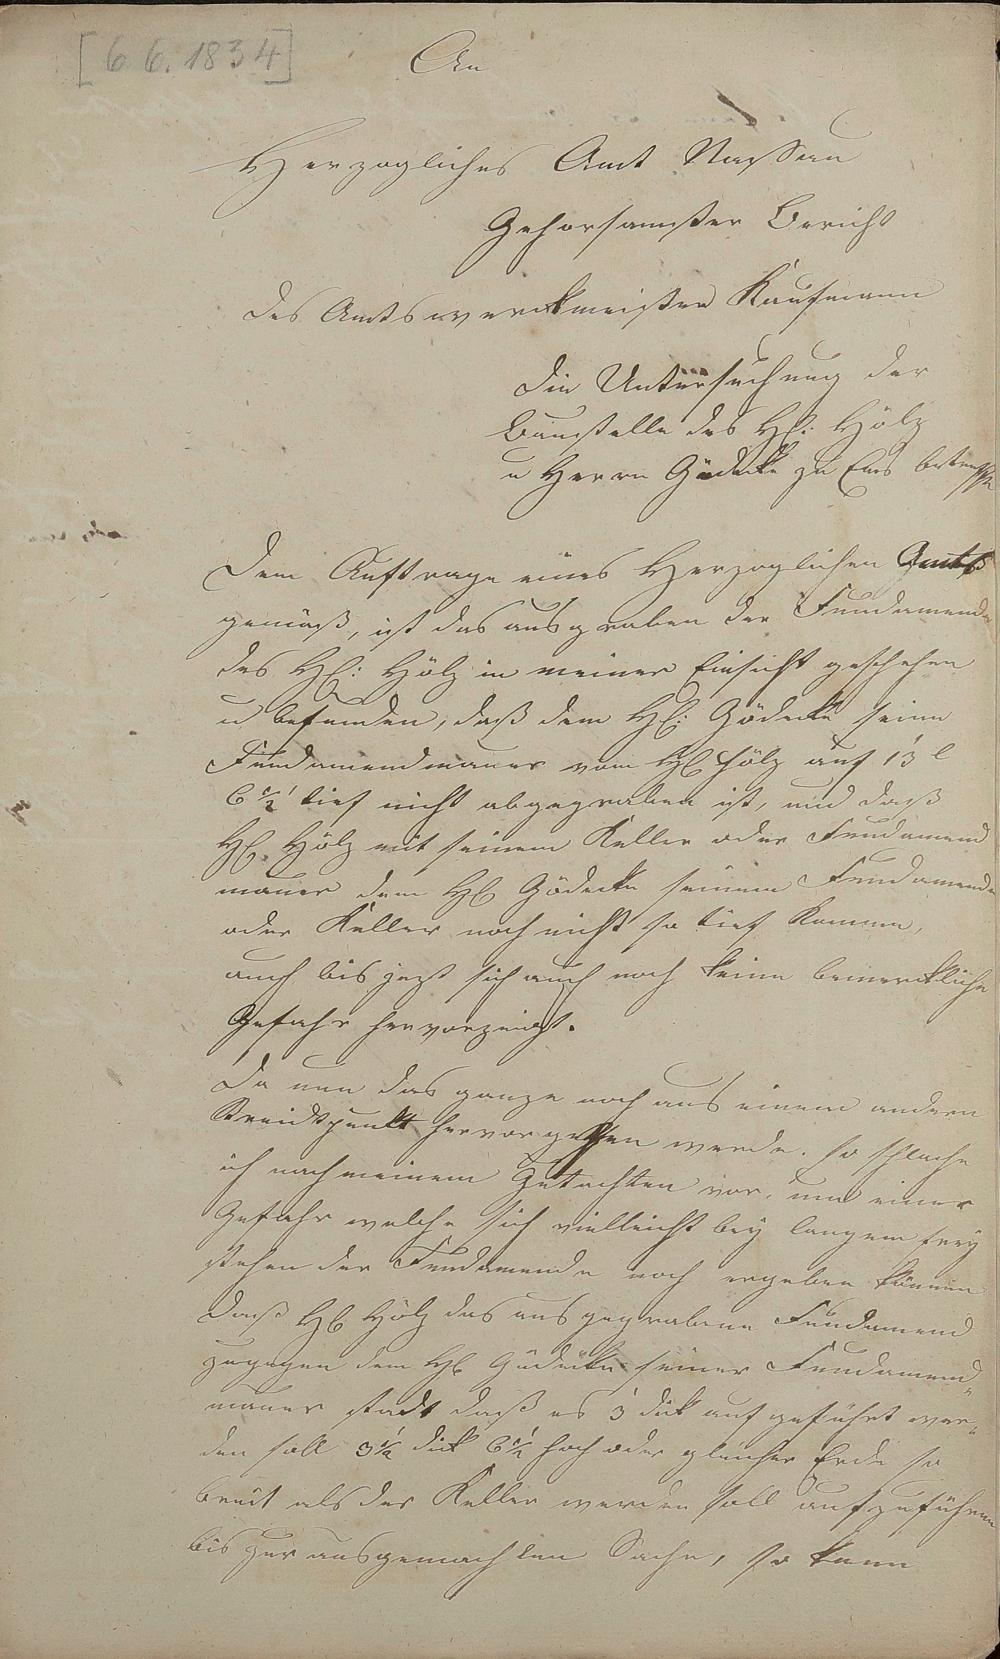 [6.6.1834]
An
Herzogliches Amt Nassau
Gehorsamster Bericht
des Amtswerckmeister Kaufmann
die Untersuchung der
Baustelle des H: Hölz
u Herrn Gödecke zu Ems betreffe
Dem Auftrage eines Herzoglichen Amts
gemäß, ist das ausgraben der Fundamende
des H: Hölz in meiner Einsicht geschehen
u befunden, daß dem H: Gödecke seine
Fundamendmauer vom H Hölz auf 13' l
6½' tief nicht abgegraben ist, und daß
H Hölz mit seinem Keller oder Fundamend
mauer dem H Gödecke seinem Fundamende
oder Keller noch nicht so tief komme,
auch bis jezt sich auch noch keine bemerckliche
Gefahr hervorzeigt.
Da nun das ganze noch aus einem andern
Streidtpunkt hervorgehen werde. so schlache
ich nach meinem Gutachten vor, um einer
Gefahr welche sich vielleicht bey langem frey
stehen der Fundamende noch ergeben könnn
daß H Hölz das ausgegrabene Fundamend
zugegen dem H Gödecke seiner Fundamend„
mauer stadt daß es 3' dick aufgeführt wer„
den soll 3½' dick 6½' hoch oder gleicher Erde so
breit als der Keller werden soll aufzuführen
bis zur ausgemachten Sache, so kann